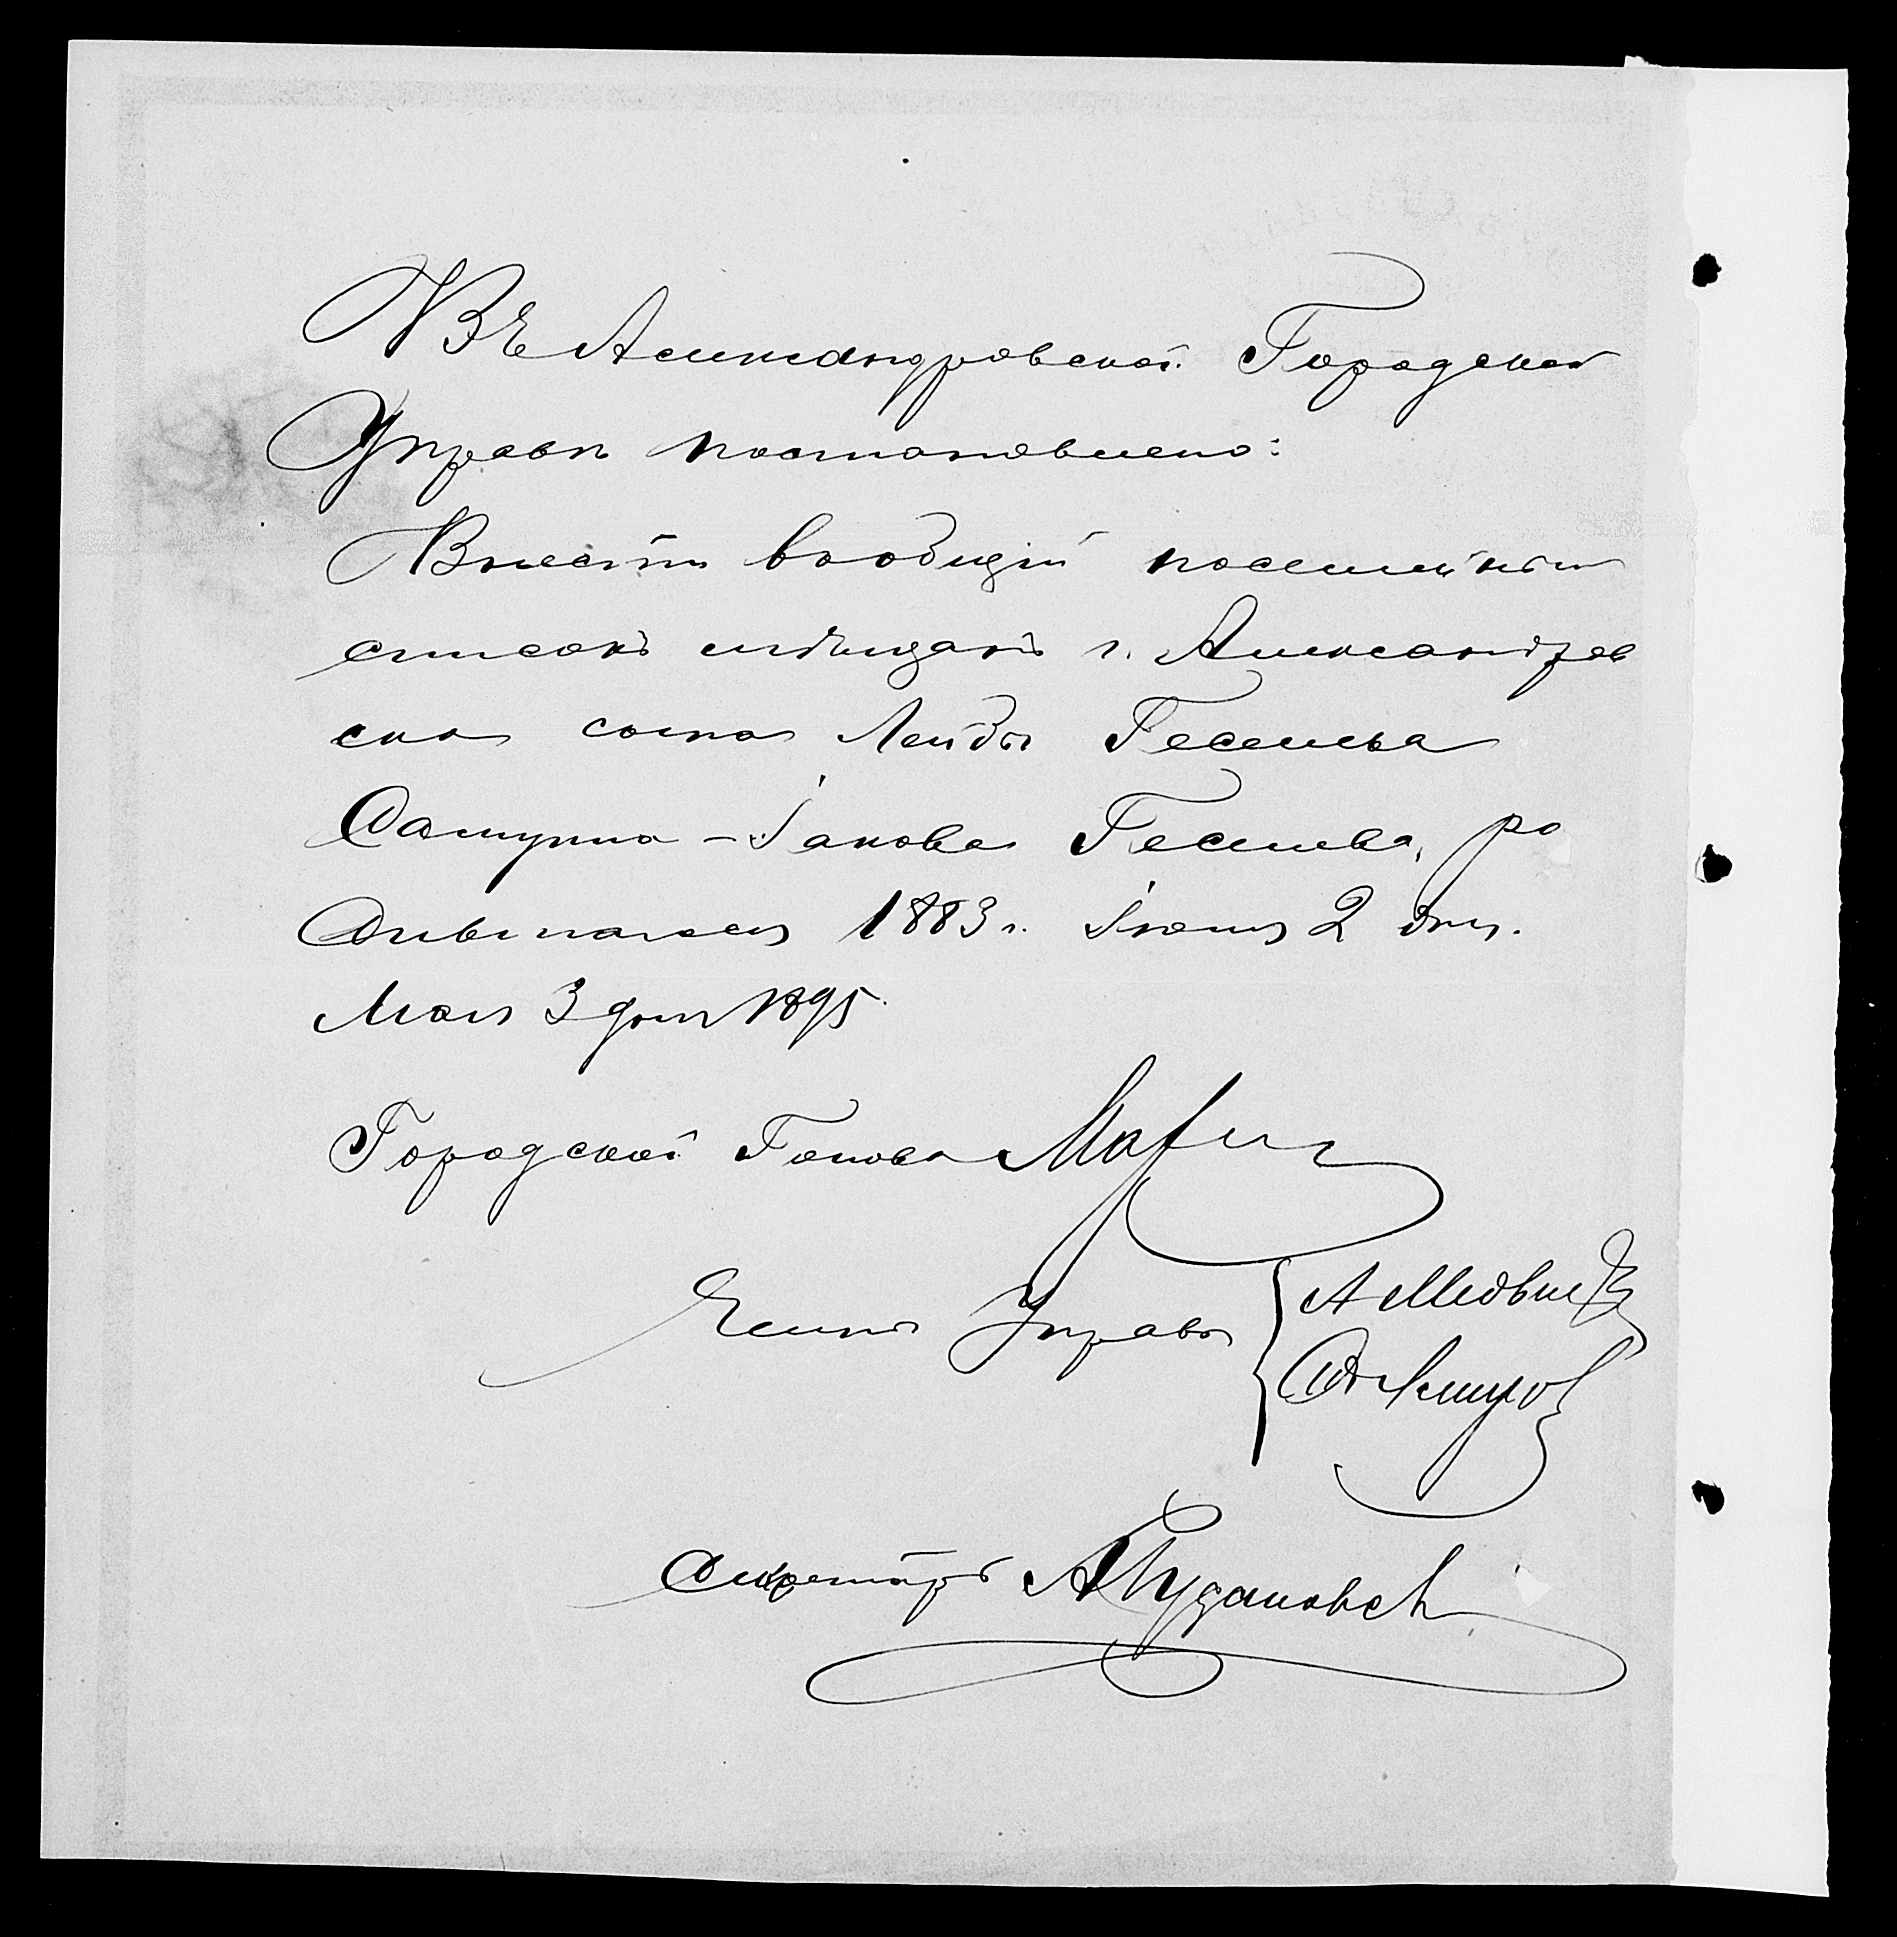 Въ Александровской Городской
Управѣ постановлено:
Внести вообщій посемейный
списокъ мѣщанъ г. Александров
ска сына Лейбы Геселева
Самуила-Іакова Геселева, ро
дившагося 1883 г. Іюня 2 дня.
Мая 3 дня 1895.
Городской Голова
Члены Управы { А Медвѣд
Секретарь